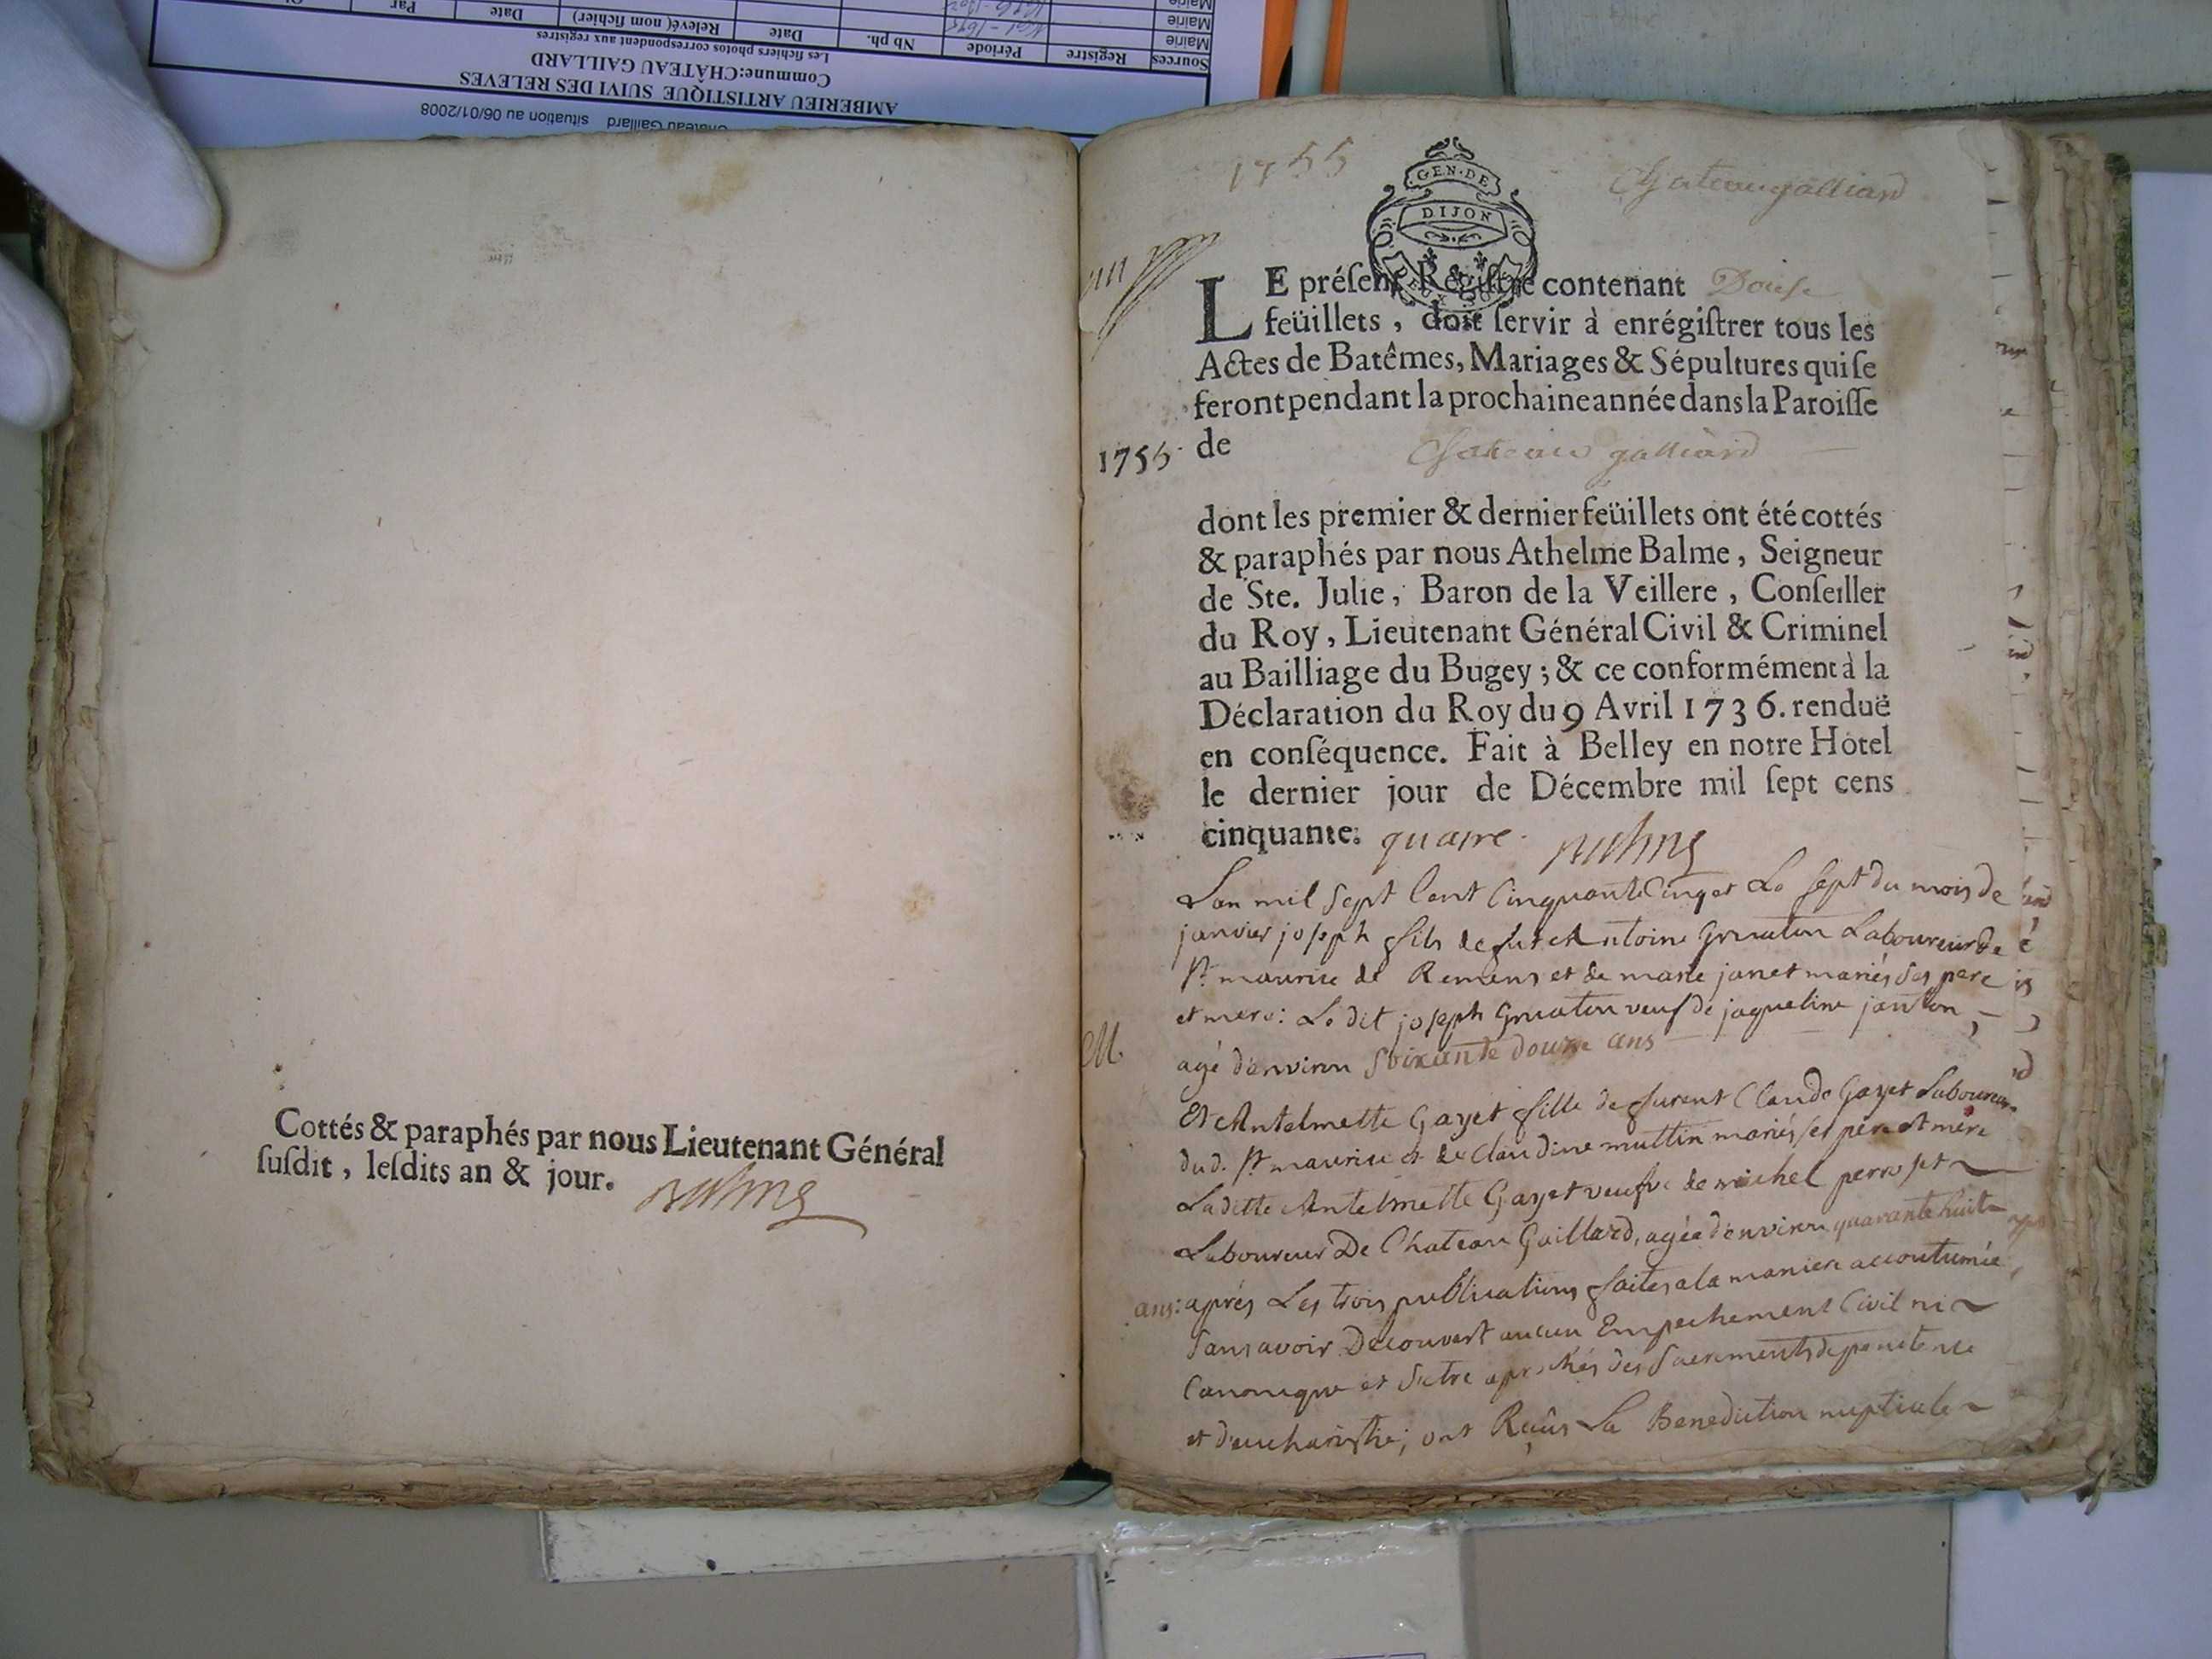 Château Gaillard situation au 06/01/2008
AMBERIEU ARTISTIQUE SUIVI DES RELEVES
Commune:CHÂTEAU GAILLARD
Les fichiers photos correspondent aux registres
Sources Registre Période Nb ph. Date Relevé( nom fichier) Date Par
Mairie
Mairie
Mairie
Cottés & paraphés par nous Lieutenant Général
ſuſdit, leſdits an & jour.
Balme
1755
Chateaugalliard
GEN·DE
DIJON
LE préſent Régiſtre contenant Douse
feüillets, doit ſervir à enrégiſtrer tous les
Actes de Batêmes, Mariages & Sépultures qui ſe
feront pendant la prochaine année dans la Paroiſſe
1755 de Chateau galliard
dont les premier & dernier feüillets ont été cottés
& paraphés par nous Athelme Balme, Seigneur
de Ste. Julie, Baron de la Veillere, Conſeiller
du Roy, Lieutenant Général Civil & Criminel
au Bailliage du Bugey; & ce conformément à la
Déclaration du Roy du 9 Avril 1736. renduë
en conſéquence. Fait à Belley en notre Hôtel
le dernier jour de Décembre mil ſept cens
cinquante. quatre. Balme
Lan mil Sept Cent Cinquante Cinq et Le Sept du mois de
janvier joseph fils de fut Antoine Gruaton Laboureur de
St. maurice de Remens et de marie janet mariés ses pere
et mere: Le dit joseph Gruaton veuf de jaqueline janton,
M. agé d'environ Soixante douze ans
Et Antelmette Gayet fille de furent Claude Gayet Laboureur
dud. St maurice et de Claudine muttin mariés ses père et mère
Laditte Antelmette Gayet veufve de michel perroset
Laboureur De Chateau Gaillard, agée d'environ quarante huit
ans: aprés Les trois publications faites a la maniere accoutumée
Sans avoir Decouvert aucun Empechement Civil ni
Canonique et S'etre aprochés des Sacrements de penitence
et d'eucharistie; ont Reçus La Benediction nuptiale